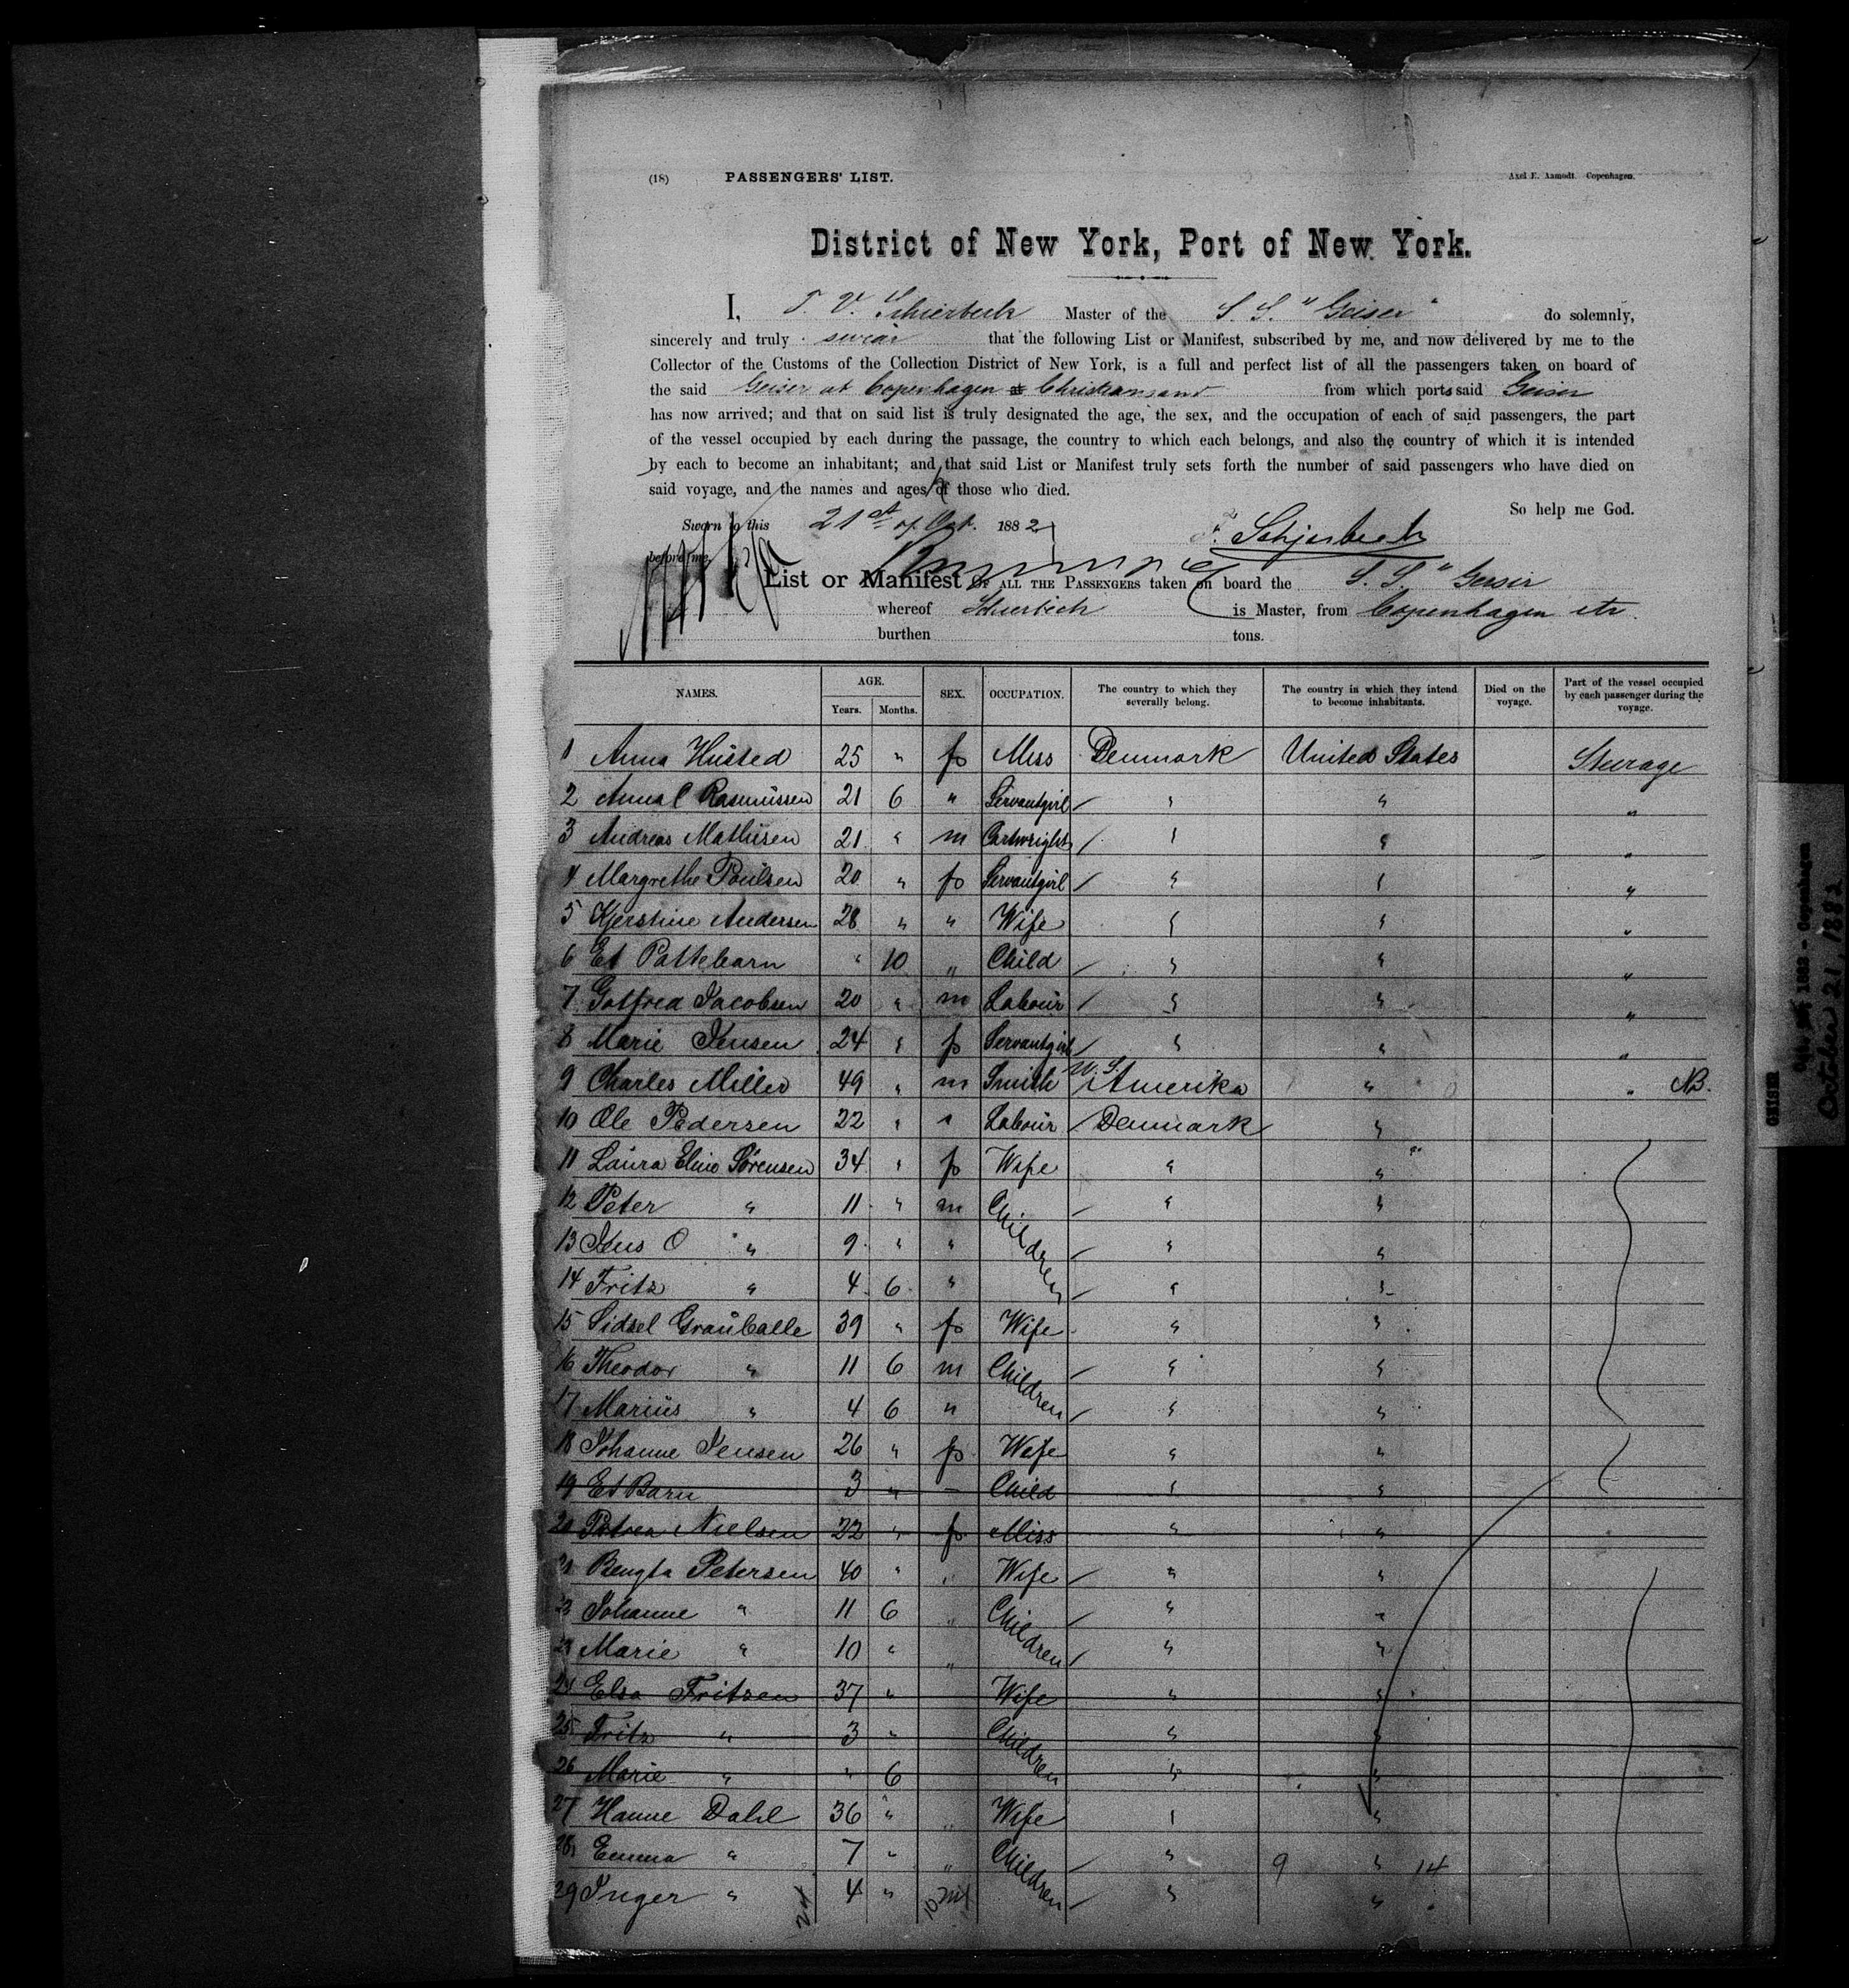 (18) PASSENGERS' LIST. Axel E. Aamodt. Copenhagen.
District of New York, Port of New York.
I, T. V. Schierbeck Master of the S. S. "Geiser" do solemnly,
sincerely and truly swear that the following List or Manifest, subscribed by me, and now delivered by me to the
Collector of the Customs of the Collection District of New York, is a full and perfect list of all the passengers taken on board of
the said Geiser at Copenhagen & Christiansand from which ports said Geiser
has now arrived; and that on said list is truly designated the age, the sex, and the occupation of each of said passengers, the part
of the vessel occupied by each during the passage, the country to which each belongs, and also the country of which it is intended
by each to become an inhabitant; and that said List or Manifest truly sets forth the number of said passengers who have died on
said voyage, and the names and ages of those who died.
So help me God.
Sworn to this 21st of Oct. 1882
before me
Schjerbeck
List or Manifest OF ALL THE PASSENGERS taken on board the S. S. "Geiser
whereof Schierbeck is Master, from Copenhagen etc.
burthen tons.
NAMES. AGE. Years. Months. SEX. OCCUPATION. The country to which they severally belong. The country in which they intend to become inhabitants. Died on the voyage. Part of the vessel occupied by each passenger during the voyage.
1 Anna Husted 25 " f Miss Denmark United States Steerage
2 Anna C Rasmussen 21 6 " Servantgirl " " "
3 Andreas Mathisen 21 " m Cartwright " " "
4 Margrethe Poulsen 20 " f Servantgirl " " "
5 Kjerstine Andersen 28 " " Wife " " "
6 Et Pattebarn " 10 " Child " " "
7 Gotfred Jacobsen 20 " m Labour " " "
8 Marie Jensen 24 " f Servantgirl " " "
9 Charles Miller 49 " m Smith U. S. Amerika " " NB.
10 Ole Pedersen 22 " " Labour Denmark "
11 Laura Eline Sørensen 34 " f Wife " "
12 Peter " 11 " m Children " "
13 Jens O " 9 " " " "
14 Fritz " 4 6 " " "
15 Sidsel Grauballe 39 " f Wife " "
16 Theodor " 11 6 m Children " "
17 Marius " 4 6 " " "
18 Johanne Jensen 26 " f Wife " "
19 Et Barn 3 " Child " "
20 Petrea Nielsen 22 " f Miss " "
21 Bengta Petersen 40 " " Wife " "
22 Johanne " 11 6 " Children " "
23 Marie " 10 " " " "
24 Elsa Fritzen 37 " Wife " "
25 Fritz " 3 " Children " "
26 Marie " " 6 " "
27 Hanne Dahl 36 " " Wife " "
28 Emma " 7 " " Children " " 9 14
29 Inger " 4 " " "
24
10 m
1882 - Copenhagen
October 21, 1882